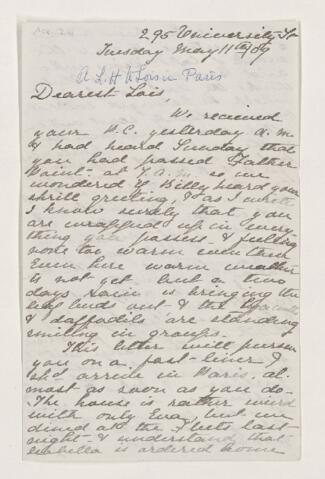 295 University St
Tuesday May 11th/09
A.L.H to Lois in Paris
Dearest Lois,
We received
your P.C. yesterday a.m
& had heard Sunday that
you had passed Father
Point at 7 A.M. so we
wondered if Billy heard your
shrill greeting, & as I write
I know surely that you
are wrapped up in every
thing you possess & feeling
none too warm even then
Even here warm weather
is not yet but a two
days rain is bringing the
leaf buds out & the
& daffodils are standing
smiling in groups.
This letter will pursue
you on a fast-liner &
shd arrive in Paris, al
most as soon as you do-
The house is rather weird
with only Eva, but we
dined at the Fleets last
night- & understand that
Isabella is ordered home